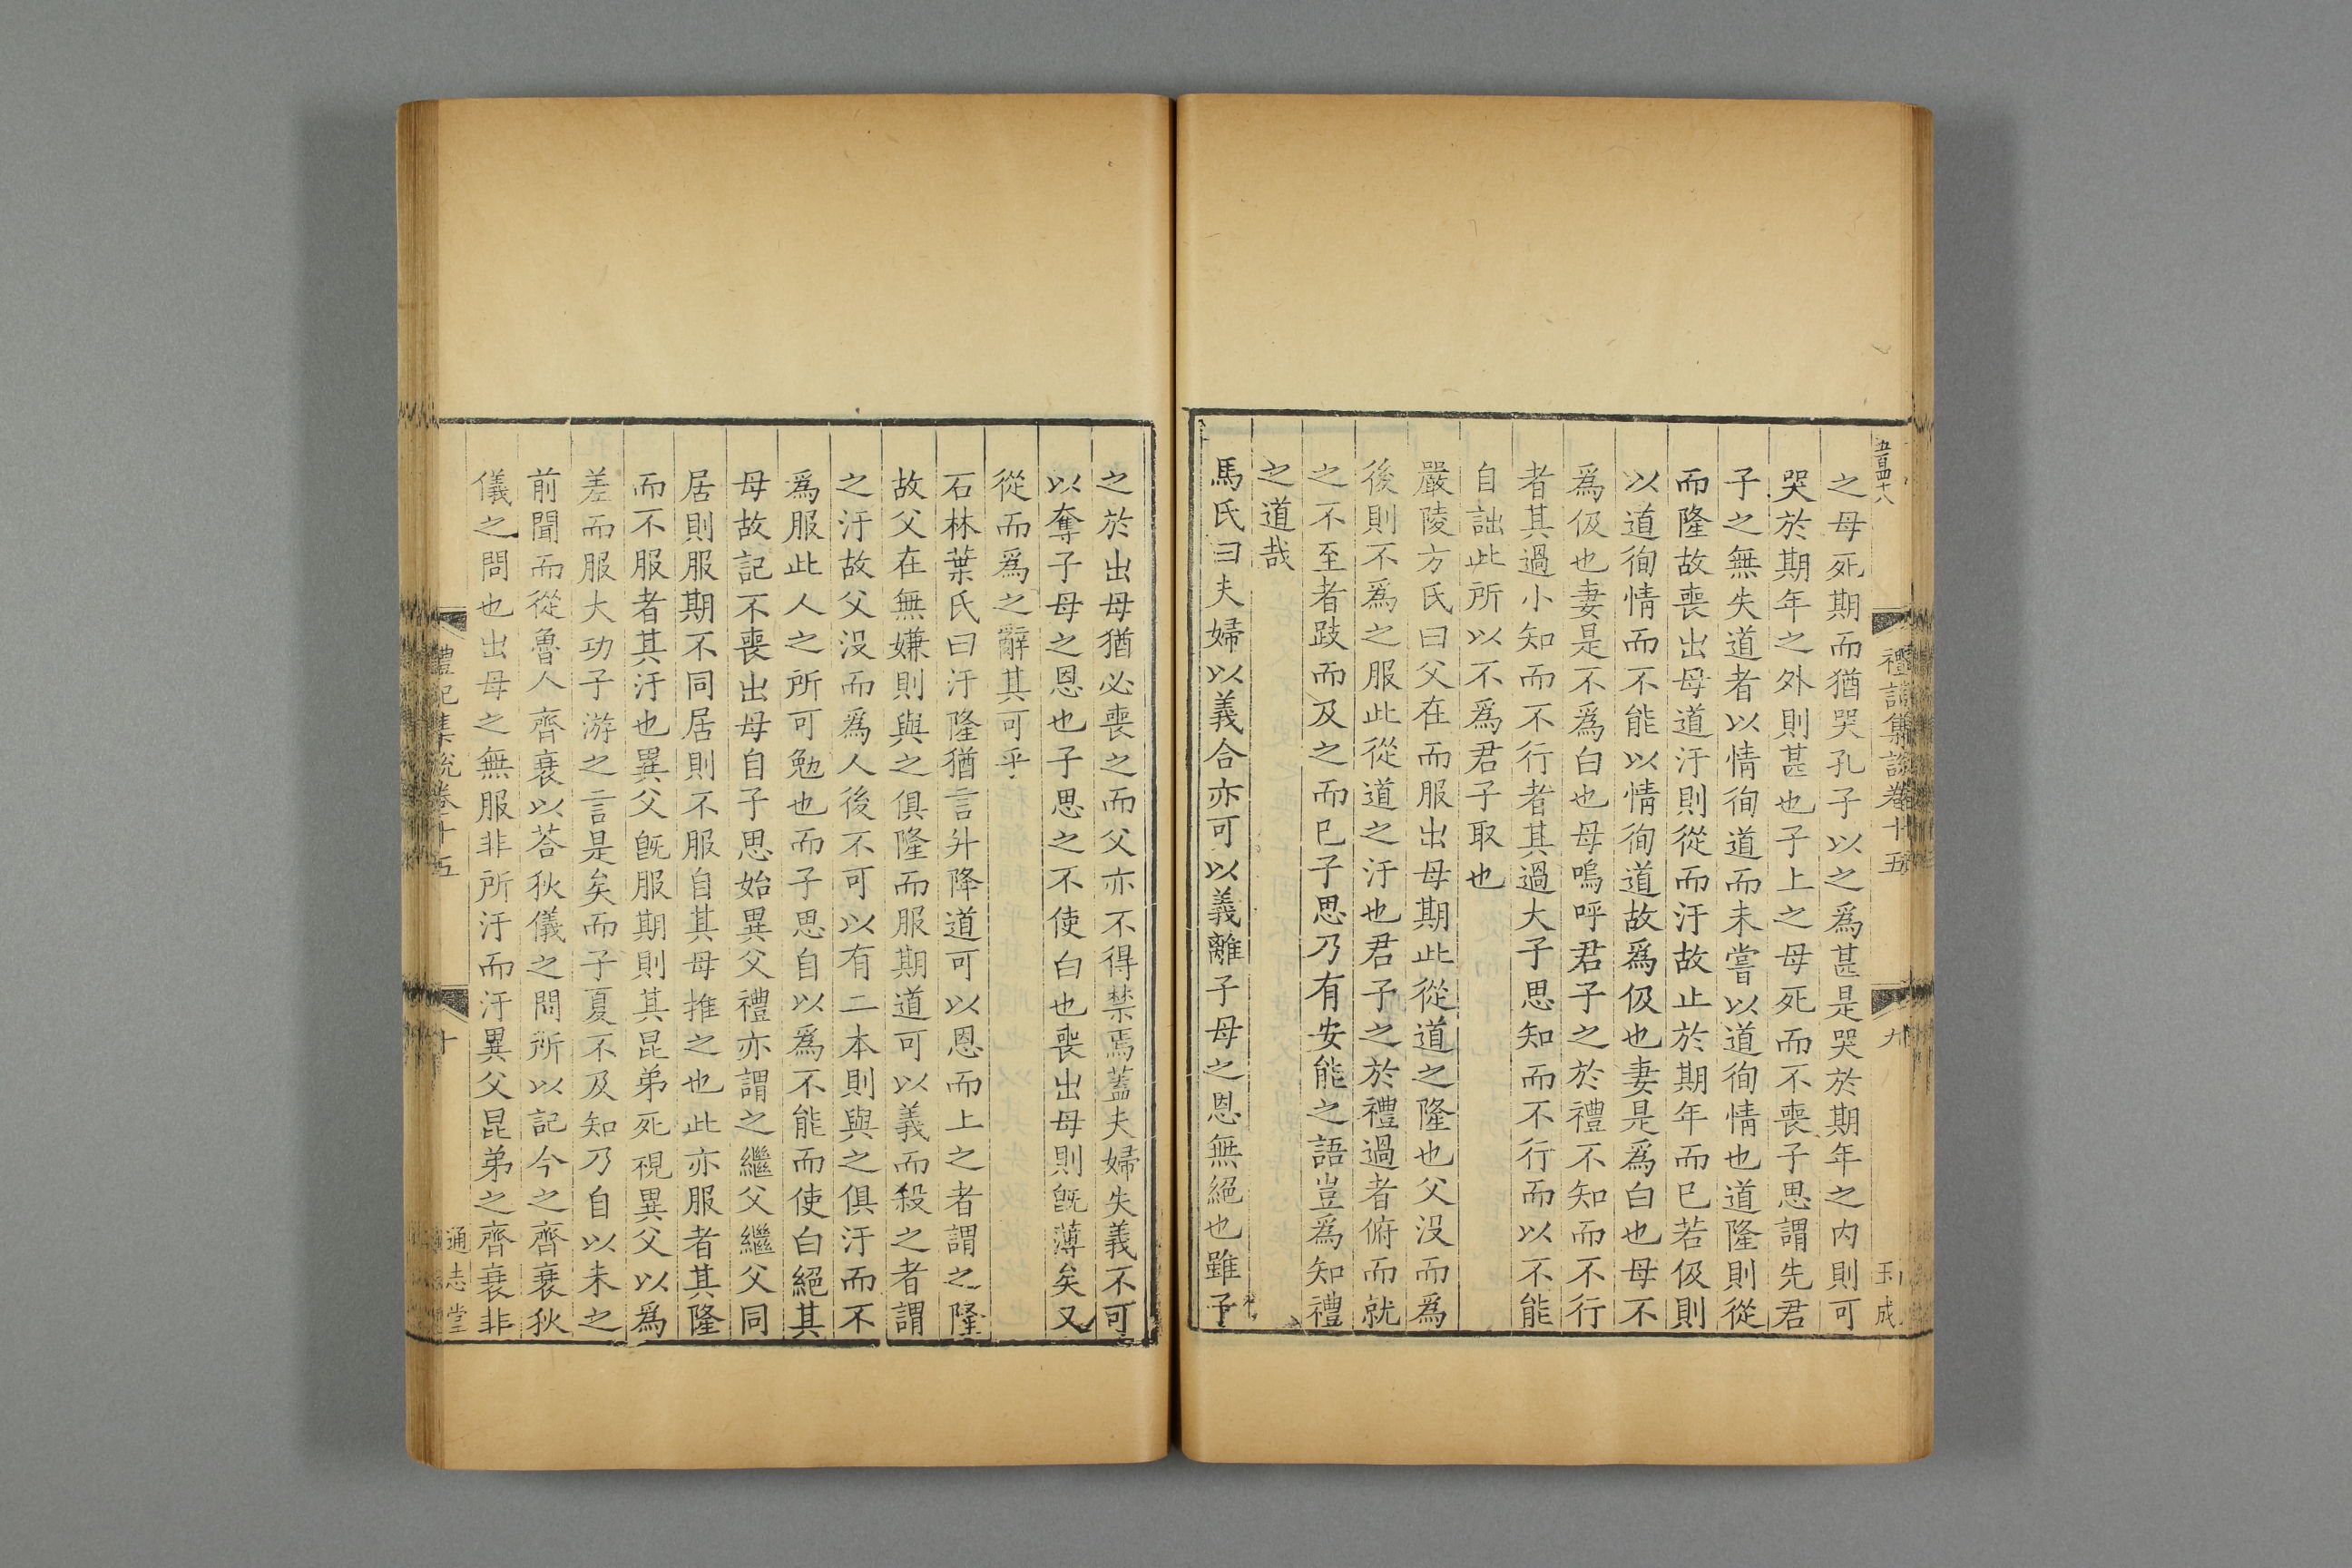 五百四十八
禮記集說卷十五
九
玉成
之母死期而猶哭孔子以之爲甚是哭於期年之内則可
哭於期年之外則甚也子上之母死而不喪子思謂先君
子之無失道者以情徇道而未嘗以道徇情也道隆則從
而隆故喪出母道汙則從而汙故止於期年而已若伋則
以道徇情而不能以情徇道故爲伋也妻是爲白也母不
爲伋也妻是不爲白也母嗚呼君子之於禮不知而不行
者其過小知而不行者其過大子思知而不行而以不能
自詘此所以不爲君子取也
嚴陵方氏曰父在而服出母期此從道之隆也父沒而爲
後則不爲之服此從道之汙也君子之於禮過者俯而就
之不至者跂而及之而已子思乃有安能之語豈爲知禮
之道哉
馬氏曰夫婦以義合亦可以義離子母之恩無絕也雖子
之於出母猶必喪之而父亦不得禁焉蓋夫婦失義不可
以奪子母之恩也子思之不使白也喪出母則旣薄矣又
從而爲之辭其可乎
石林葉氏曰汙隆猶言升降道可以恩而上之者謂之隆
故父在無嫌則與之俱隆而服期道可以義而殺之者謂
之汙故父沒而爲人後不可以有二本則與之俱汙而不
爲服此人之所可勉也而子思自以爲不能而使白絕其
母故記不喪出母自子思始異父禮亦謂之繼父繼父同
居則服期不同居則不服自其母推之也此亦服者其隆
而不服者其汙也異父旣服期則其昆弟死視異父以爲
差而服大功子游之言是矣而子夏不及知乃自以未之
前聞而從魯人齊衰以荅狄儀之問所以記今之齊衰狄
儀之問也出母之無服非所汙而汙異父昆弟之齊衰非
禮記集說卷十五
十
通志堂